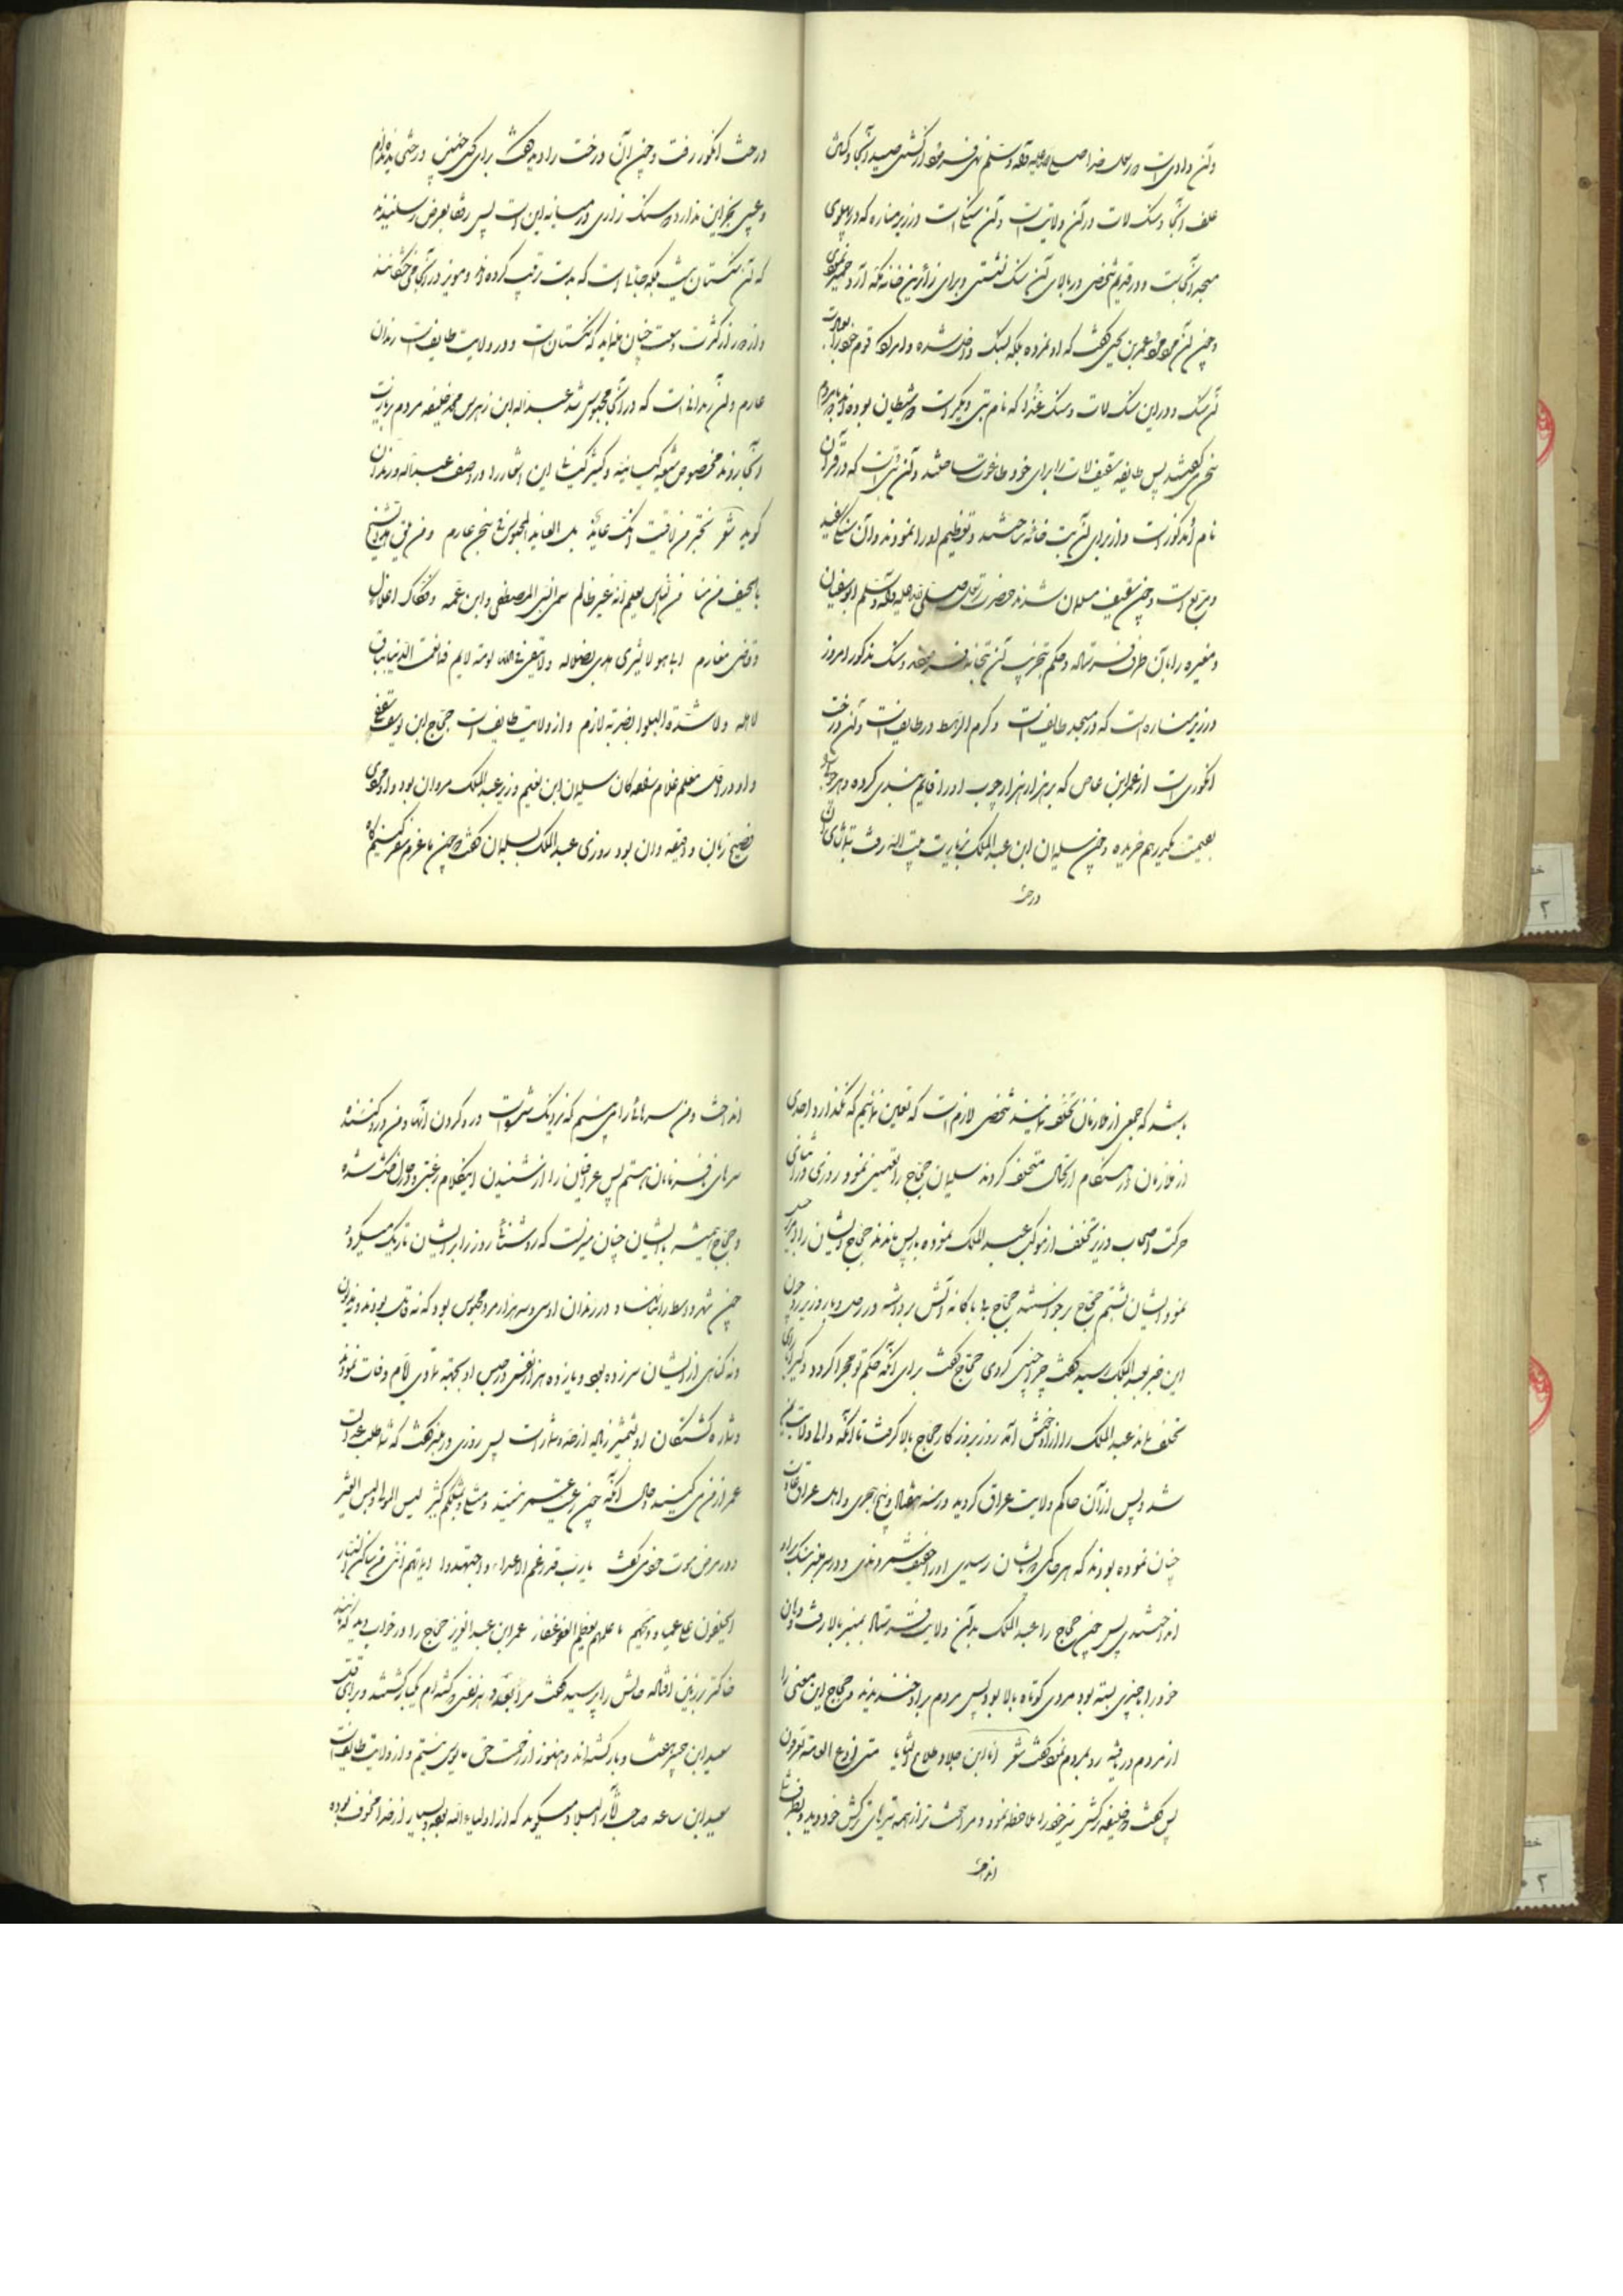 و آن وادیست که رسول خدا صلی الله علیه و آله و سلم نهی فرمود از کشتن صید آنجا و کندن
علف آنجا و سنک لات در آن ولایت است و آن سنگی است در زیر مناره که در پهلوی
مسجد آنجاست و در قدیم شخصی در بالای آن سنک نشستی و برای زائرین خانه مکه آرد خمیر نمودی
و چون آن مرد مرد عمر بن لحی گفت که او نمرده بلکه بسنک داخل شده و امر کرد قوم خود را بعبادت
آن سنک و در این سنک لات و سنک عذرا که نام بتی دیگر است دو شیطان بوده اند که با مردم
سخن گفتند پس طایفه ثقیف لات را برای خود طاغوت ساختند و آن بتی است که در قرآن
نام او مذکور است و از برای آن بت خانه ساختند و تعظیم او را نمودند و آن سنگی سفید
و مربع است و چون ثقیف مسلمان شدند حضرت رسول صلی الله علیه و آله و سلم ابوسفیان
و مغیره را بآن طرف فرستاده و حکم بتخریب آن بتخانه فرموده و سنک مذکور امروز
در زیر مناره است که در مسجد طایف است و کرم الرهط در طایف است و آن درخت
انگوری است از عمرابن عاص که بر هزار هزار چوب او را قایم بندی کرده و هر چوب
بقیمت یکدرهم خریده و چون سلیمان ابن عبدالملک بزیارت بیت الله رفت بتماشای آن
درخت
درخت انکور رفت و چون آن درخت را دید گفت برای کسی چنین درختی ندیده ام
و عیبی بجز این ندارد که سنک زاری در میانه این است پس رفقا بعرض رسانیدند
که آن سنکستان نیست بلکه جاها است که بدست ترتیب کرده اند و مویز در آنجا می خشکانند
و از دور از کثرت وسعت چنان مینماید که سنکستان است و در ولایت طایف است زندان
عارم و آن زندانی است که در آنجا محبوس شد عبدالله ابن زبیر پس محمد حنفیه مردم بزیارت
آنجا روند مخصوص شیعه کیسانیه و کثیر این اشعار را در وصف عبدالله در زندان
گوید شعر تخبر من لاقیت انک عائذ بل العائذ المحبوس فی سجن عارم و من یلق هذا الشیخ
بالخیف من منا من الناس یعلم انه غیر ظالم سمی النبی المصطفی و ابن عمه و فکاک اغلال
و قاضی مغارم ابا هو لا یشری هدی بضلاله و لا یتقی فی الله لومه لایم فما نعمت الدنیا بباق
لاهله و لا شدة البلوا بضربه لازم و از ولایت طایف است حجاج ابن یوسف ثقفی
و او در اول معلم غلام بود و سلیمان ابن نعیم وزیر عبدالملک مروان بود و او مردی
فصیح زبان و دقیقه دان بود روزی عبدالملک بسلیمان گفت که چون ما عزم سفر کنیم گاه
باشد که جمعی از ملازمان تخلف نمایند شخصی لازم است که تعیین نمائیم که نگذارد احدی
از ملازمان در هنگام ارتحال متخلف گردند سلیمان حجاج را تعیین نمود روزی در اثنای
حرکت اصحاب وزیر تخلف از موکب عبدالملک نموده باز پس ماندند حجاج ایشان را
نمود ایشان بشتم حجاج برخواستند حجاج آتش برداشته در رحل وزیر زد چون
این خبر بعبدالملک رسید گفت چرا چنین کردی حجاج گفت برای آنکه حکم تو مجرا گردد و دیگر احدی
تخلف نماید عبدالملک را از او خوش آمد روز بروز کار حجاج بالا گرفت تا آنکه والی ولایت یمن
شد و پس از آن حاکم ولایت عراق گردید در سنه هفتاد و پنج هجری و اهل عراق عادت
چنان نموده بودند که هر حاکمی که بایشان رسیدی او را خفیف شمردندی و در سر منبر سنک بر او
انداختندی پس چون حجاج را عبدالملک بدان ولایت فرستاد بمنبر بالا رفت و دهان
خود را بچیزی بسته بود مردی کوتاه بالا بود پس مردم بر او خندیدند و حجاج این معنی را
از مردم دریافته رو بمردم نمود گفت شعر انا ابن جلا و طلاع الثنایا متی اضع العمامه تعرفون
پس گفت که خلیفه ترکش تیر خود را ملاحظه نمود و مرا سخت تر از همه تیرهای ترکش خود دید و بطرف شما
انداخت
انداخت و من سرهائی را می بینم که نزدیک شده است درو کردن آنها و من درو کننده
سرهای نافرمانان هستم پس عراقیان را از شنیدن اینکلام رعبی در دل افتاده شد
و حجاج همیشه با ایشان چنان میزیست که روشنائی روز را بر ایشان تاریک میکرد
چون شهر واسط را بنا نهاد در زندان او سی و سه هزار مرد محبوس بود که نه قاتل بودند و نه مدیون
و نه گناهی از ایشان سرزده بود و پانزده هزار نفس در حبس او بجهة تمادی ایام وفات نمودند
و شماره کشتگان او بشمشیر زیاده از حد و شمار است پس روزی در منبر گفت که شما طلب عدالت
عمر از من می کنید و حال آنکه چون رعیت عمر نیستید و مثلی و مثلکم کثیر لبئس المولا و لبئس العشیر
و در مرض موت خود می گفت یا رب قد زعم الاعداء و اجتهدوا ایمانهم اننی من ساکن النار
ایحلفون علی عمیاء ویحهم ما علمهم بعظیم العفو غفار عمرابن عبدالعزیز حجاج را در خواب دید که مانند
خاکستر بر زمین افتاده حالش را پرسید گفت مرا بعدد هر نفسی که کشته ام یکبار کشتند و برای قتل
سعید ابن جبیر هفتاد بار کشته اند و هنوز از رحمت حق مایوس نیستم و از ولایت طایف است
سعید ابن ساعد صاحب آثار البلاد میگوید که از اولیاء الله بوده و بسیار از خدا مخوف بوده